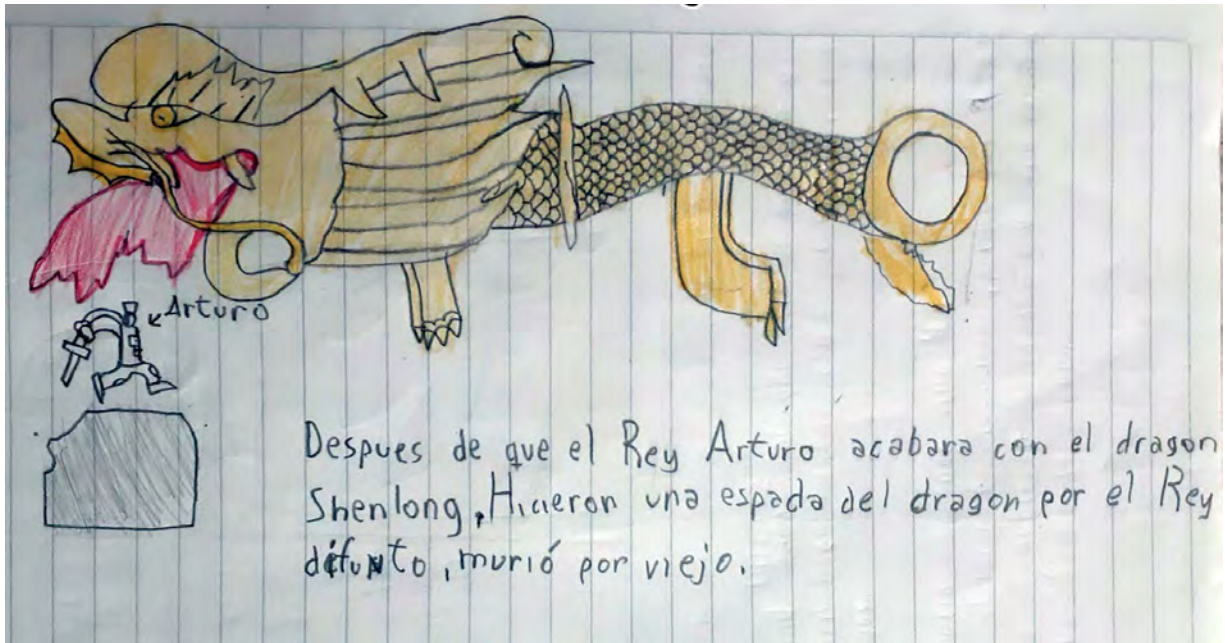 Arturo
Despues de que el Rey Arturo acabara con el dragon
Shenlong, Hicieron una espada del dragon por el Rey
difunto, murió por viejo.